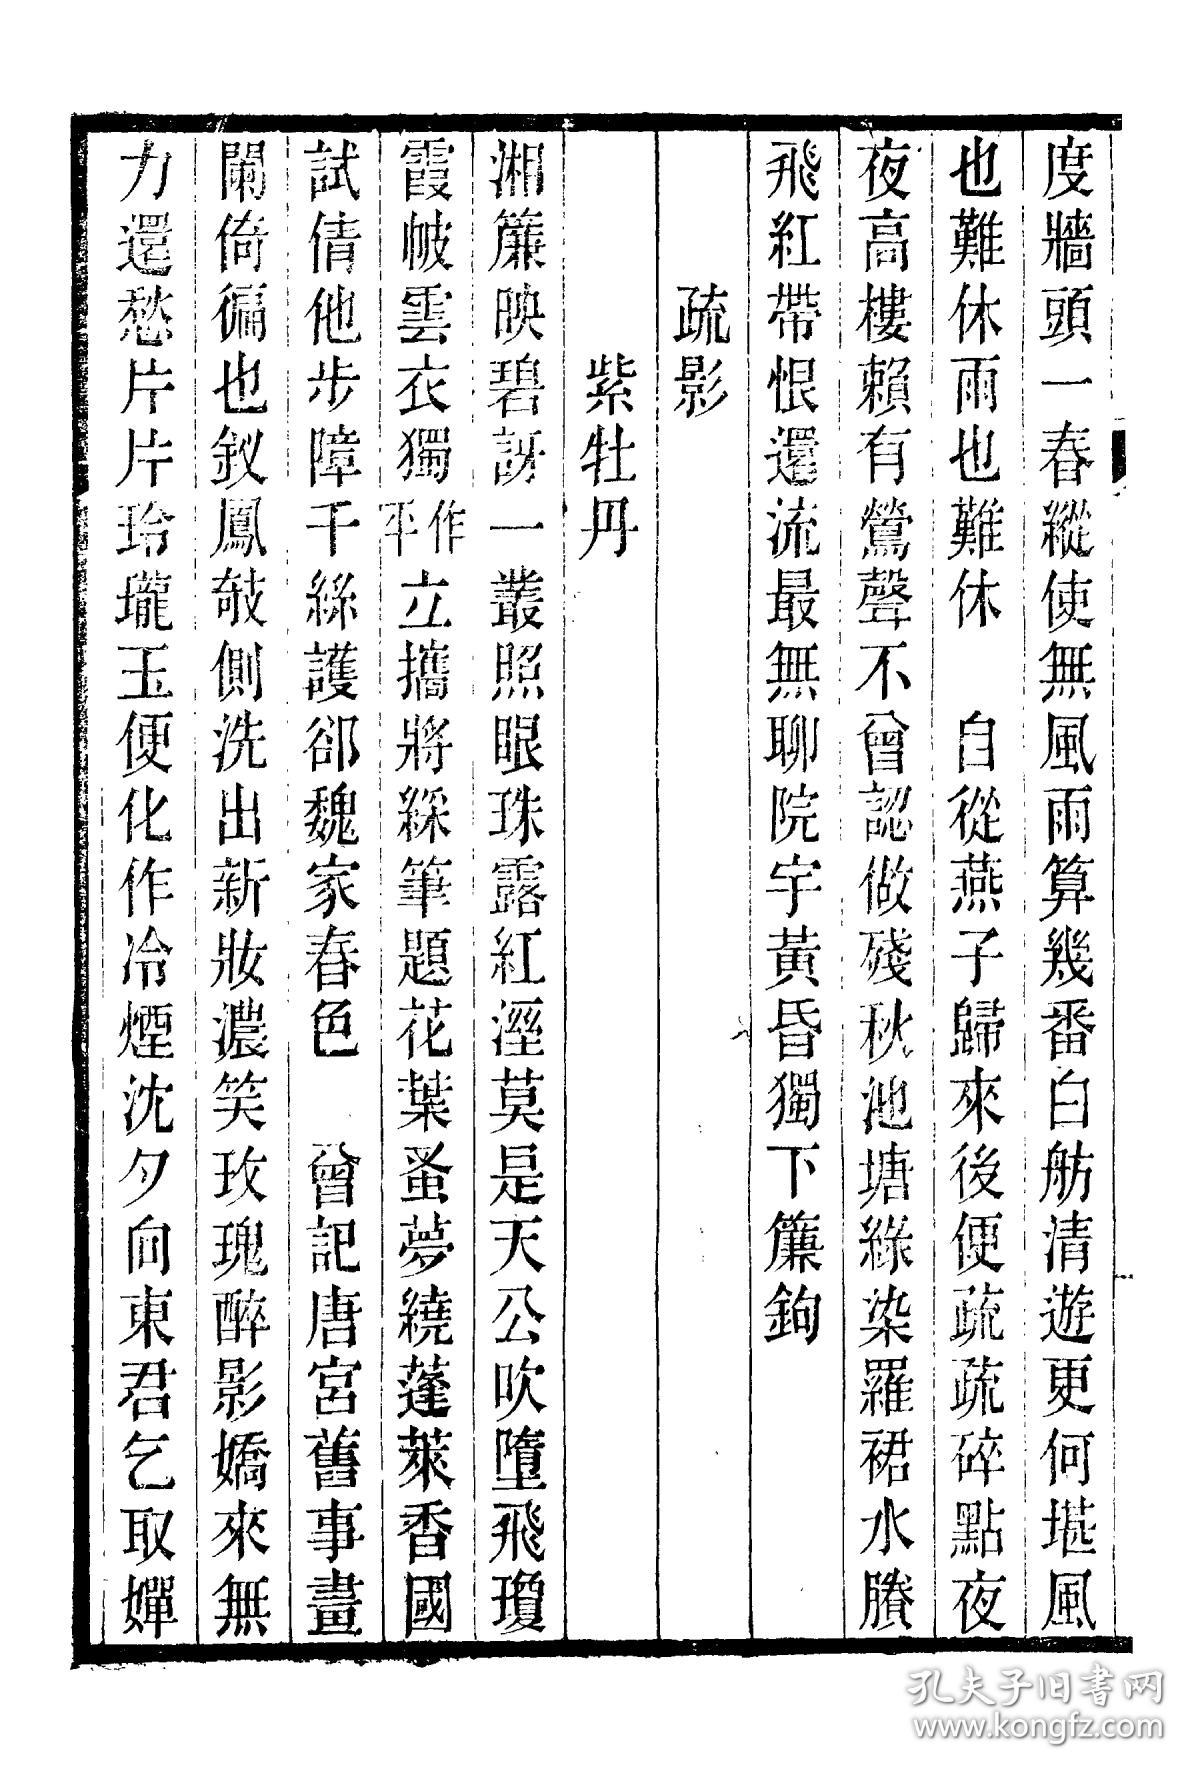 度牆頭一春縱使無風雨算幾番白舫清遊更何堪風
也難休雨也難休　自從燕子歸來後便疏疏碎點夜
夜高樓賴有鶯聲不曾認做殘秋池塘綠染羅裙水賸
飛紅帶恨還流最無聊院宇黃昏獨下簾鉤
疏影
紫牡丹
湘簾映碧訝一叢照眼珠露紅溼莫是天公吹墮飛瓊
霞帔雲衣獨作平立攜將綵筆題花葉蚤夢繞蓬萊香國
試倩他步障千絲護郤魏家春色　曾記唐宮舊事畫
闌倚徧也釵鳳攲側洗出新妝濃笑玫瑰醉影嬌來無
力還愁片片玲瓏玉便化作冷煙沈夕向東君乞取嬋
孔夫子旧书网
www.kongfz.com